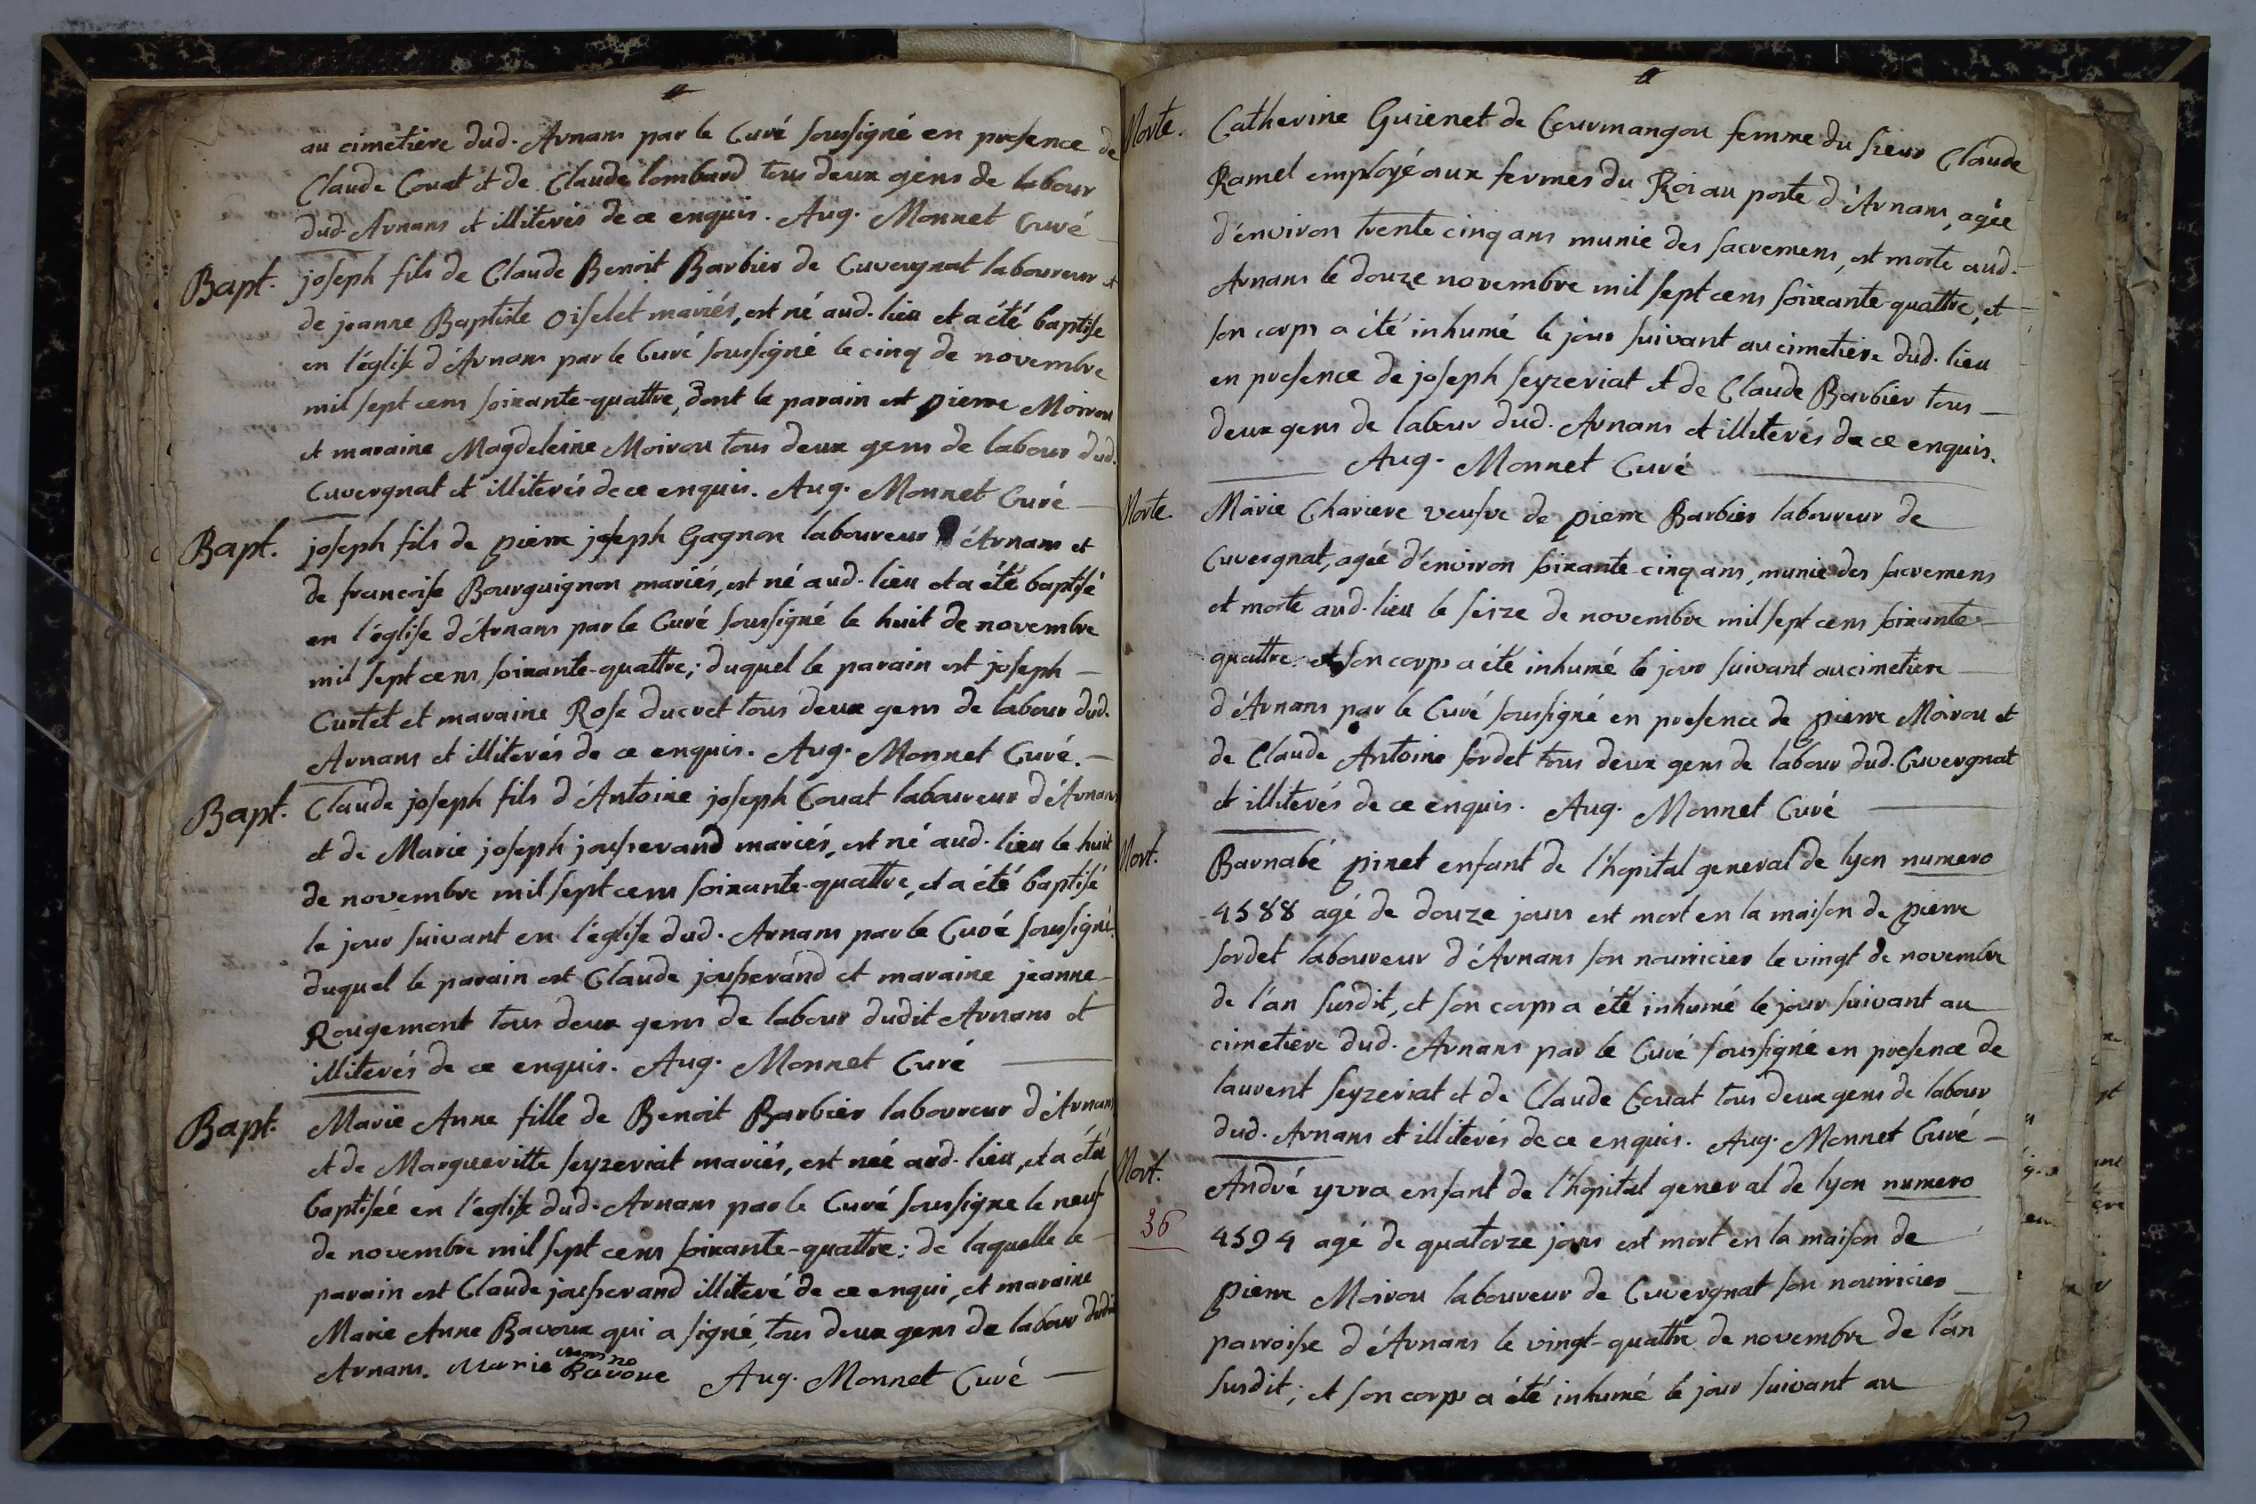 au cimetiere dud. Arnans par le Curé soussigné en presence de
Claude Couat et de Claude lombard tous deux gens de labour
dud. Arnans et illiterés de ce enquis. Aug. Monnet Curé
Bapt. joseph fils de Claude Benoit Barbier de Cuvergnat laboureur et
de jeanne Baptiste Oiselet mariés, est né aud. lieu et a été baptisé
en l'église d'Arnans par le Curé soussigné le cinq de novembre
mil sept cens soixante-quattre, dont le parain est pierre Moirou
et maraine Magdeleine Moirou tous deux gens de labour dud.
Cuvergnat et illiterés de ce enquis. Aug. Monnet Curé
Bapt. joseph fils de pierre joseph Gagnon laboureur d'Arnans et
de francoise Bourguignon mariés, est né aud. lieu et a été baptisé
en l'église d'Arnans par le Curé soussigné le huit de novembre
mil sept cens soixante-quattre; duquel le parain est joseph
Curtet et maraine Rose ducret tous deux gens de labour dud.
Arnans et illiterés de ce enquis. Aug. Monnet Curé.
Bapt. Claude joseph fils d'Antoine joseph Couat laboureur d'Arnans
et de Marie joseph jousserand mariés, est né aud. lieu le huit
de novembre mil sept cens soixante-quattre, et a été baptisé
le jour suivant en l'église dud. Arnans par le Curé soussigné.
duquel le parain est Claude jousserand et maraine jeanne
Rougemont tous deux gens de labour dudit Arnans et
illiterés de ce enquis. Aug. Monnet Curé
Bapt. Marie Anne fille de Benoit Barbier laboureur d'Arnans
et de Margueritte seyzeriat mariés, est née aud. lieu, et a été
baptisée en l'église dud. Arnans par le Curé soussigné le neuf
de novembre mil sept cens soixante-quattre: de laquelle le
parain est Claude jousserand illiteré de ce enqui, et maraine
Marie Anne Bavoux qui a signé, tous deux gens de labour dudit
Arnans. Marie Anne Bavoue Aug. Monnet Curé
Morte. Catherine Guienet de Courmangou femme du sieur Claude
Ramel employé aux fermes du Roi au poste d'Arnans, agée
d'environ trente cinq ans munie des sacremens, est morte aud.
Arnans le douze novembre mil sept cens soixante-quattre, et
son corps a été inhumé le jour suivant au cimetiere dud. lieu
en presence de joseph seyzeriat et de Claude Barbier tous
deux gens de labour dud. Arnans et illiterés de ce enquis.
Aug. Monnet Curé
Morte. Marie Chariere veufve de pierre Barbier laboureur de
Cuvergnat, agée d'environ soixante-cinq ans, munie des sacremens
et morte aud. lieu le seize de novembre mil sept cens soixante
quattre. et son corps a été inhumé le jour suivant au cimetiere
d'Arnans par le Curé soussigné en presence de pierre Moirou et
de Claude Antoine sordet tous deux gens de labour dud. Cuvergnat
et illiterés de ce enquis. Aug. Monnet Curé
Mort. Barnabé pinet enfant de l'hopital general de lyon numero
4588 agé de douze jours est mort en la maison de pierre
sordet laboureur d'Arnans son nourricier le vingt de novembre
de l'an susdit, et son corps a été inhumé le jour suivant au
cimetiere dud. Arnans par le Curé soussigné en presence de
laurent seyzeriat et de Claude Couat tous deux gens de labour
dud. Arnans et illiterés de ce enquis. Aug. Monnet Curé
Mort. André yvra enfant de l'hopital general de lyon numero
36 4594 agé de quatorze jours est mort en la maison de
pierre Moirou laboureur de Cuvergnat son nourricier
parroisse d'Arnans le vingt-quattre de novembre de l'an
susdit; et son corps a été inhumé le jour suivant au